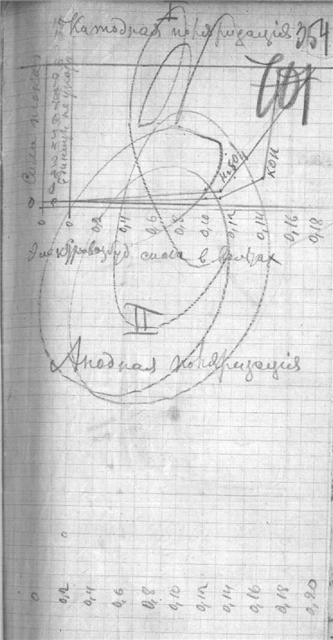 I
Катодная поляризація
354
701
Сила тока
H₂SO₄
KOH
0 0,2 0,4 0,6 0,8 0,10 0,12 0,14 0,16 0,18
Электровозбуд сила в вольтах
II
Анодная поляризація
0 0,2 0,4 0,6 0,8 0,10 0,12 0,14 0,16 0,18 0,20